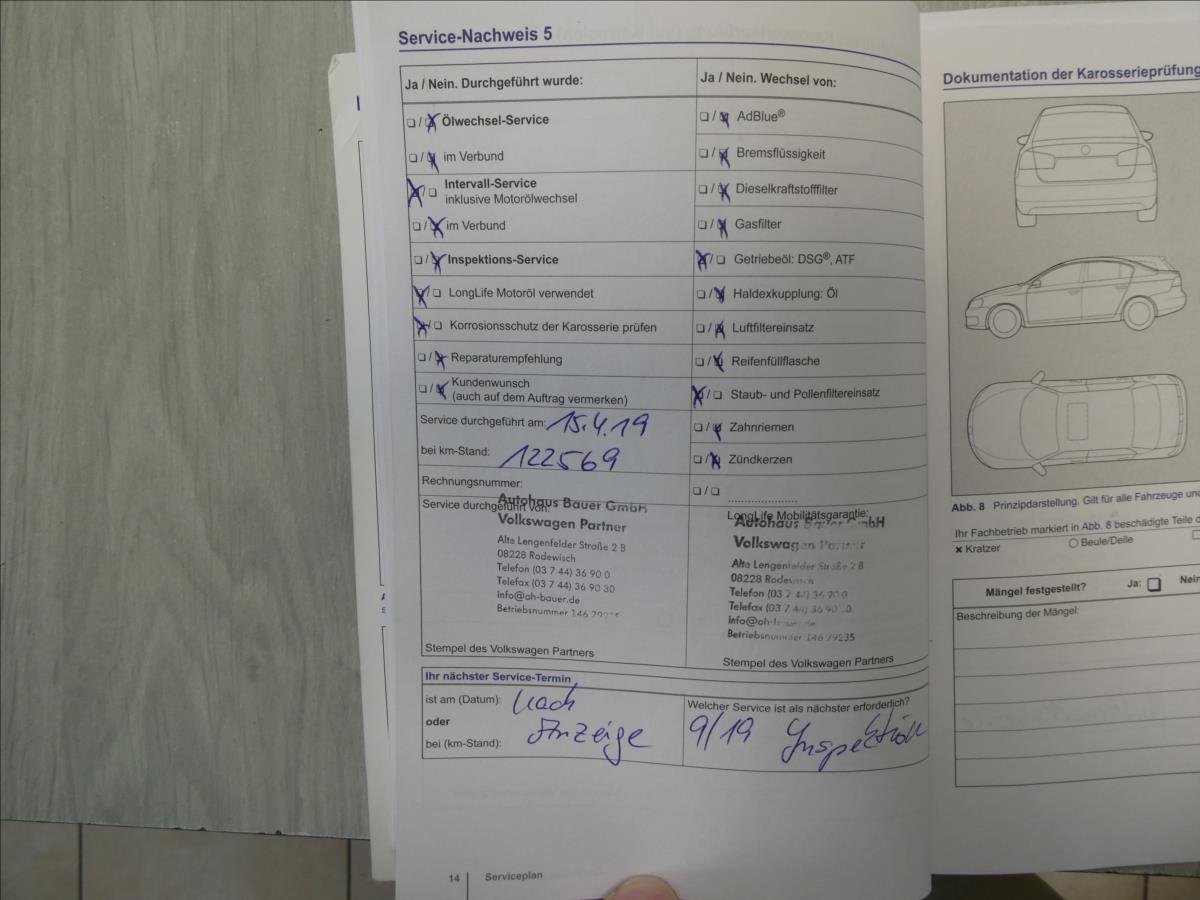 Service-Nachweis 5
Ja / Nein. Durchgeführt wurde:
❏ / ❏ Ölwechsel-Service
❏ / ❏ im Verbund
❏ / ❏ Intervall-Service
inklusive Motorölwechsel
❏ / ❏ im Verbund
❏ / ❏ Inspektions-Service
❏ / ❏ LongLife Motoröl verwendet
❏ / ❏ Korrosionsschutz der Karosserie prüfen
❏ / ❏ Reparaturempfehlung
❏ / ❏ Kundenwunsch
(auch auf dem Auftrag vermerken)
Service durchgeführt am: 15.4.19
bei km-Stand: 122569
Rechnungsnummer:
Service durchgeführt von:
Autohaus Bauer GmbH
Volkswagen Partner
Alte Lengenfelder Straße 2 B
08228 Rodewisch
Telefon (03 7 44) 36 90 0
Telefax (03 7 44) 36 90 30
info@ah-bauer.de
Betriebsnummer 146
Stempel des Volkswagen Partners
Ja / Nein. Wechsel von:
❏ / ❏ AdBlue®
❏ / ❏ Bremsflüssigkeit
❏ / ❏ Dieselkraftstofffilter
❏ / ❏ Gasfilter
❏ / ❏ Getriebeöl: DSG®, ATF
❏ / ❏ Haldexkupplung: Öl
❏ / ❏ Luftfiltereinsatz
❏ / ❏ Reifenfüllflasche
❏ / ❏ Staub- und Pollenfiltereinsatz
❏ / ❏ Zahnriemen
❏ / ❏ Zündkerzen
❏ / ❏ ....................
LongLife Mobilitätsgarantie:
Autohaus Bauer GmbH
Volkswagen Partner
Alte Lengenfelder Straße 2 B
08228 Rodewisch
Telefon (03 7 44) 36 90 0
Telefax (03 7 44) 36 90 30
info@ah-bauer.de
Betriebsnummer 146 79235
Stempel des Volkswagen Partners
Ihr nächster Service-Termin
ist am (Datum): Nach
oder
bei (km-Stand): Anzeige
Welcher Service ist als nächster erforderlich?
9/19 Inspektion
14 Serviceplan
Dokumentation der Karosserieprüfung
Abb. 8 Prinzipdarstellung. Gilt für alle Fahrzeuge und
Ihr Fachbetrieb markiert in Abb. 8 beschädigte Teile
✖ Kratzer ○ Beule/Delle
Mängel festgestellt? Ja: ❏ Nein
Beschreibung der Mängel: